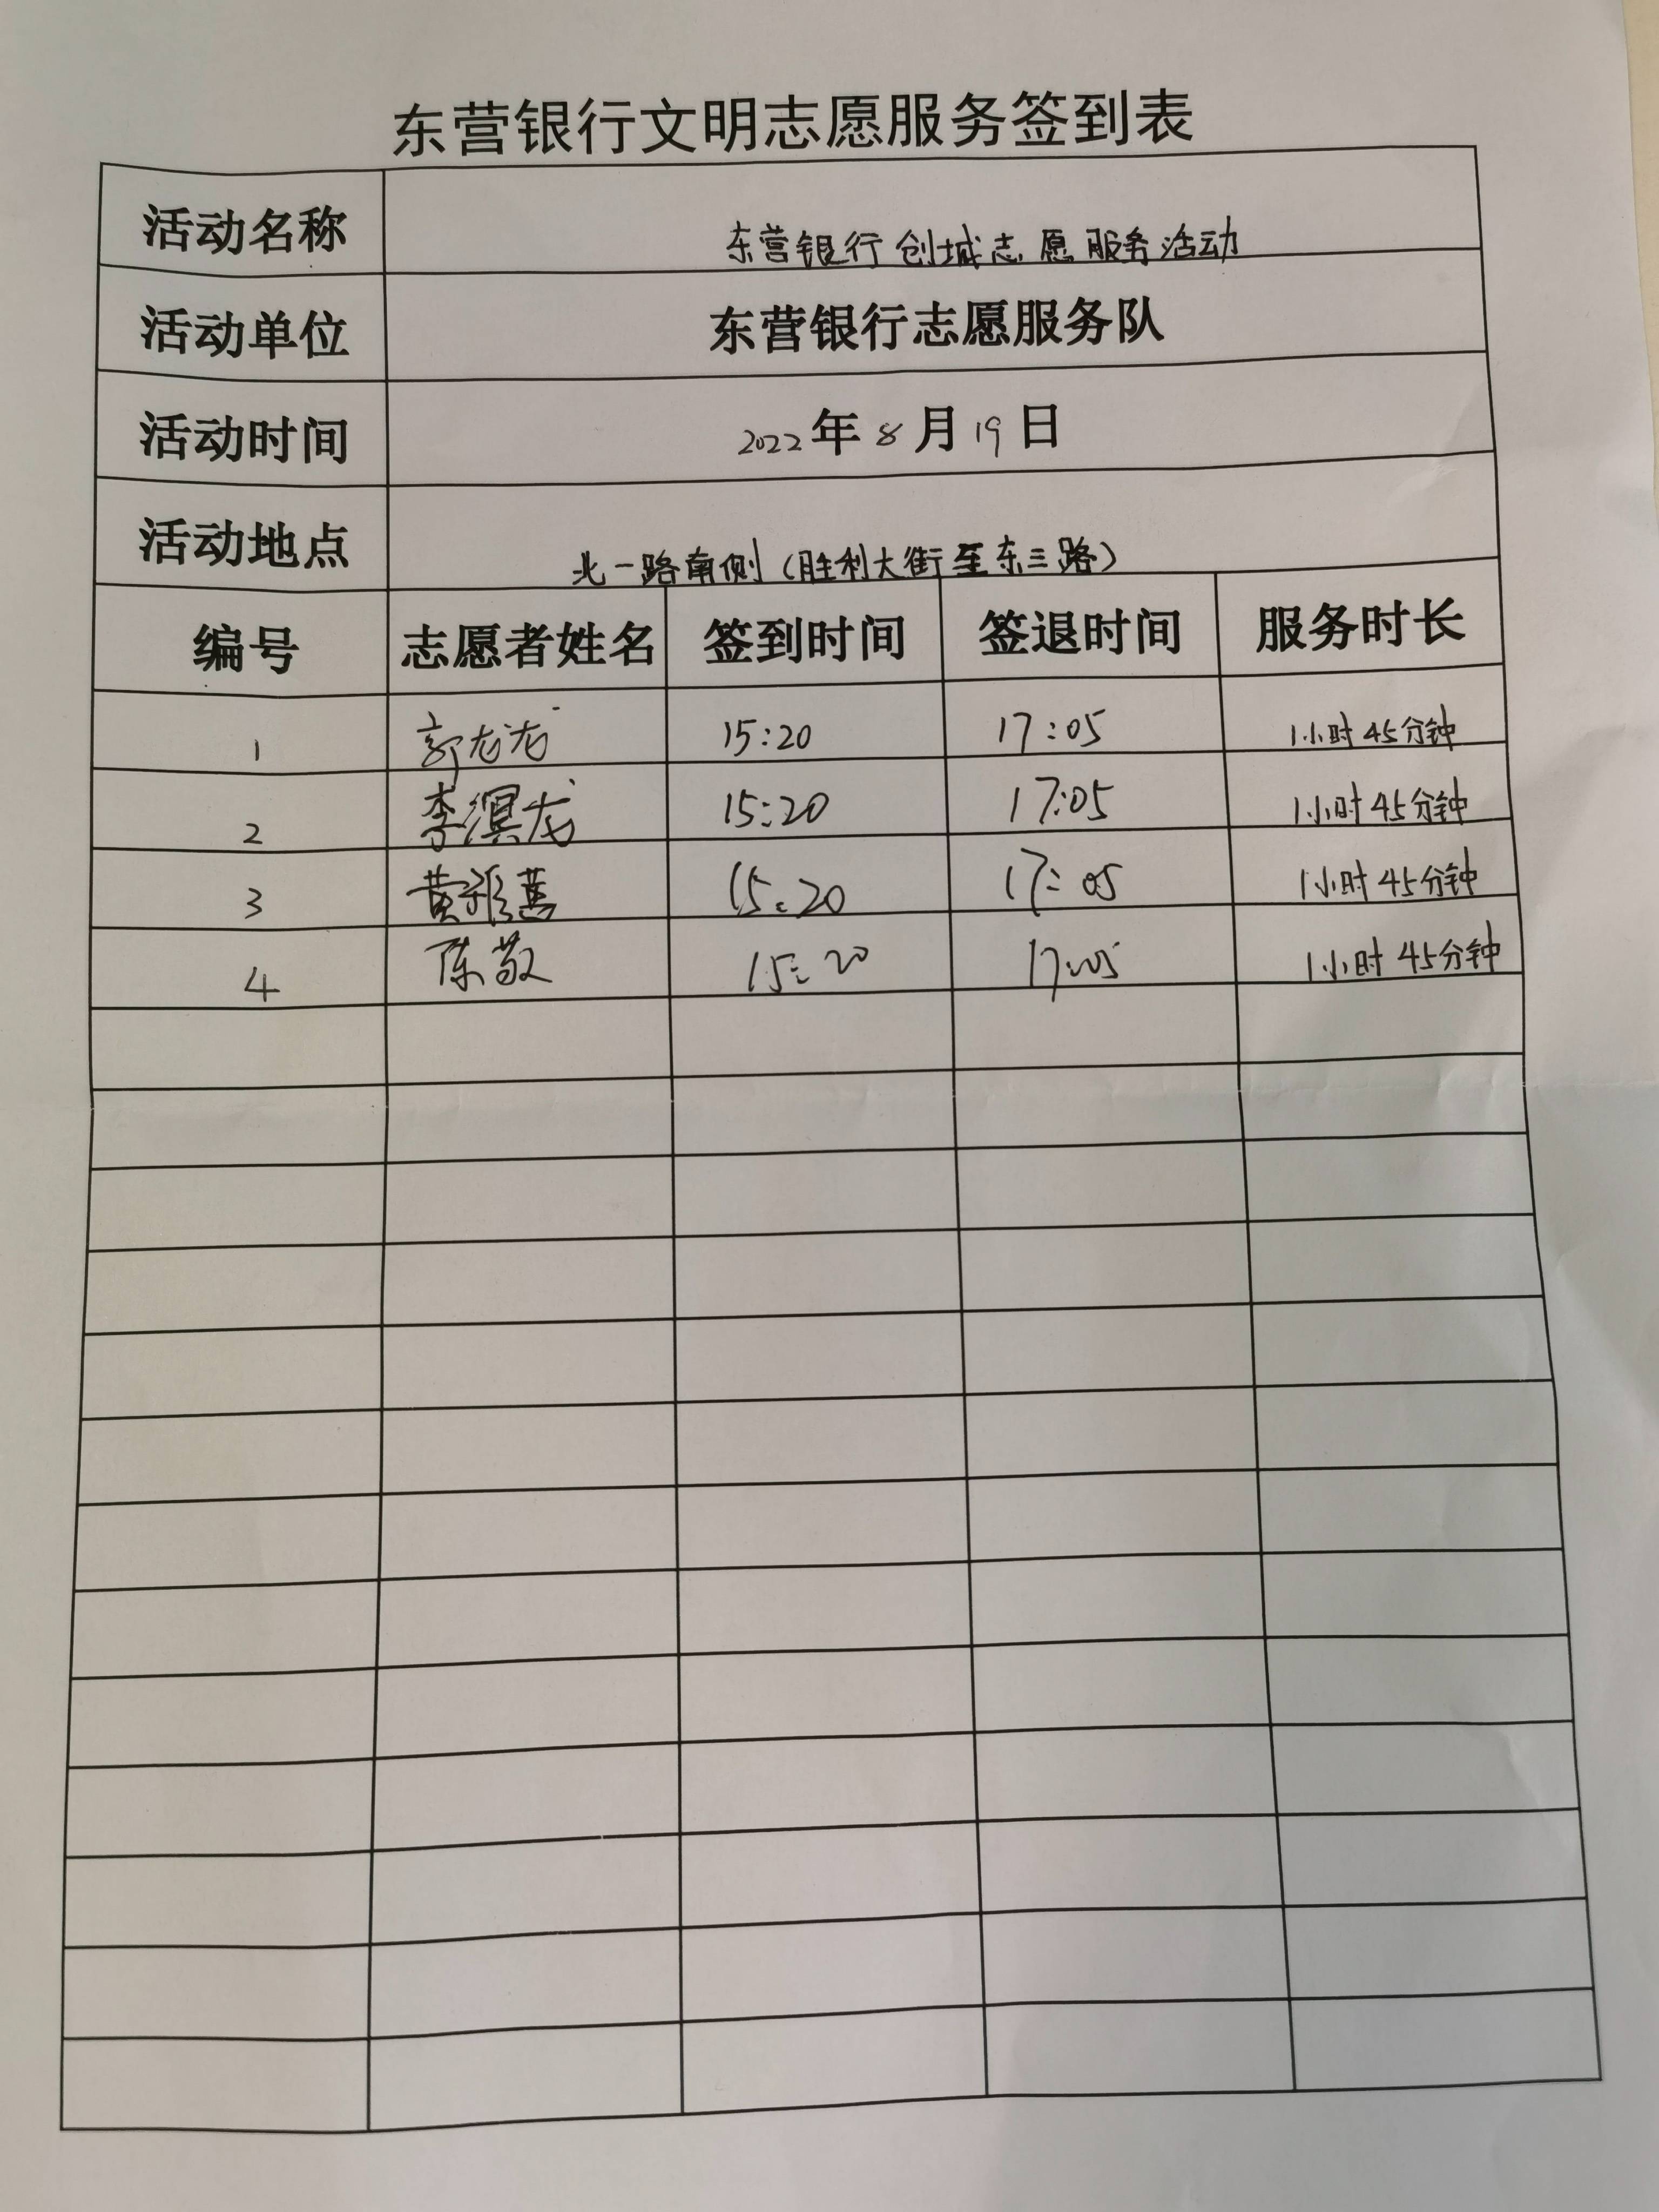 东营银行文明志愿服务签到表
活动名称 东营银行创城志愿服务活动
活动单位 东营银行志愿服务队
活动时间 2022年8月19日
活动地点 北一路南侧（胜利大街至东三路）
编号 志愿者姓名 签到时间 签退时间 服务时长
1 郭龙龙 15:20 17:05 1小时45分钟
2 李溟龙 15:20 17:05 1小时45分钟
3 黄雅 15:20 17:05 1小时45分钟
4 陈敬 15:20 17:05 1小时45分钟